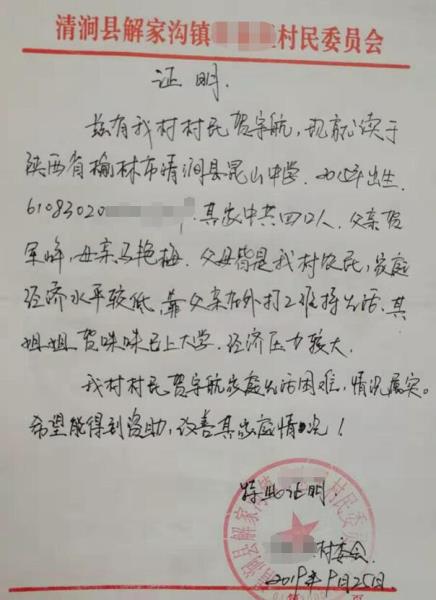 清涧县解家沟镇 村民委员会
证明.
兹有我村村民贺宇航,现就读于
陕西省榆林市清涧县昆山中学. 出生.
61083020 .其家中共四口人,父亲贺
军峰,母亲马艳梅.父母皆是我村农民,家庭
经济水平较低,靠父亲在外打工维持生活.其
姐姐贺咪咪已上大学.经济压力较大.
我村村民贺宇航家庭生活困难,情况属实。
希望能得到资助,改善其家庭情况!
特此证明.
村委会.
2019年9月25日.
清涧县解家沟镇 村民委